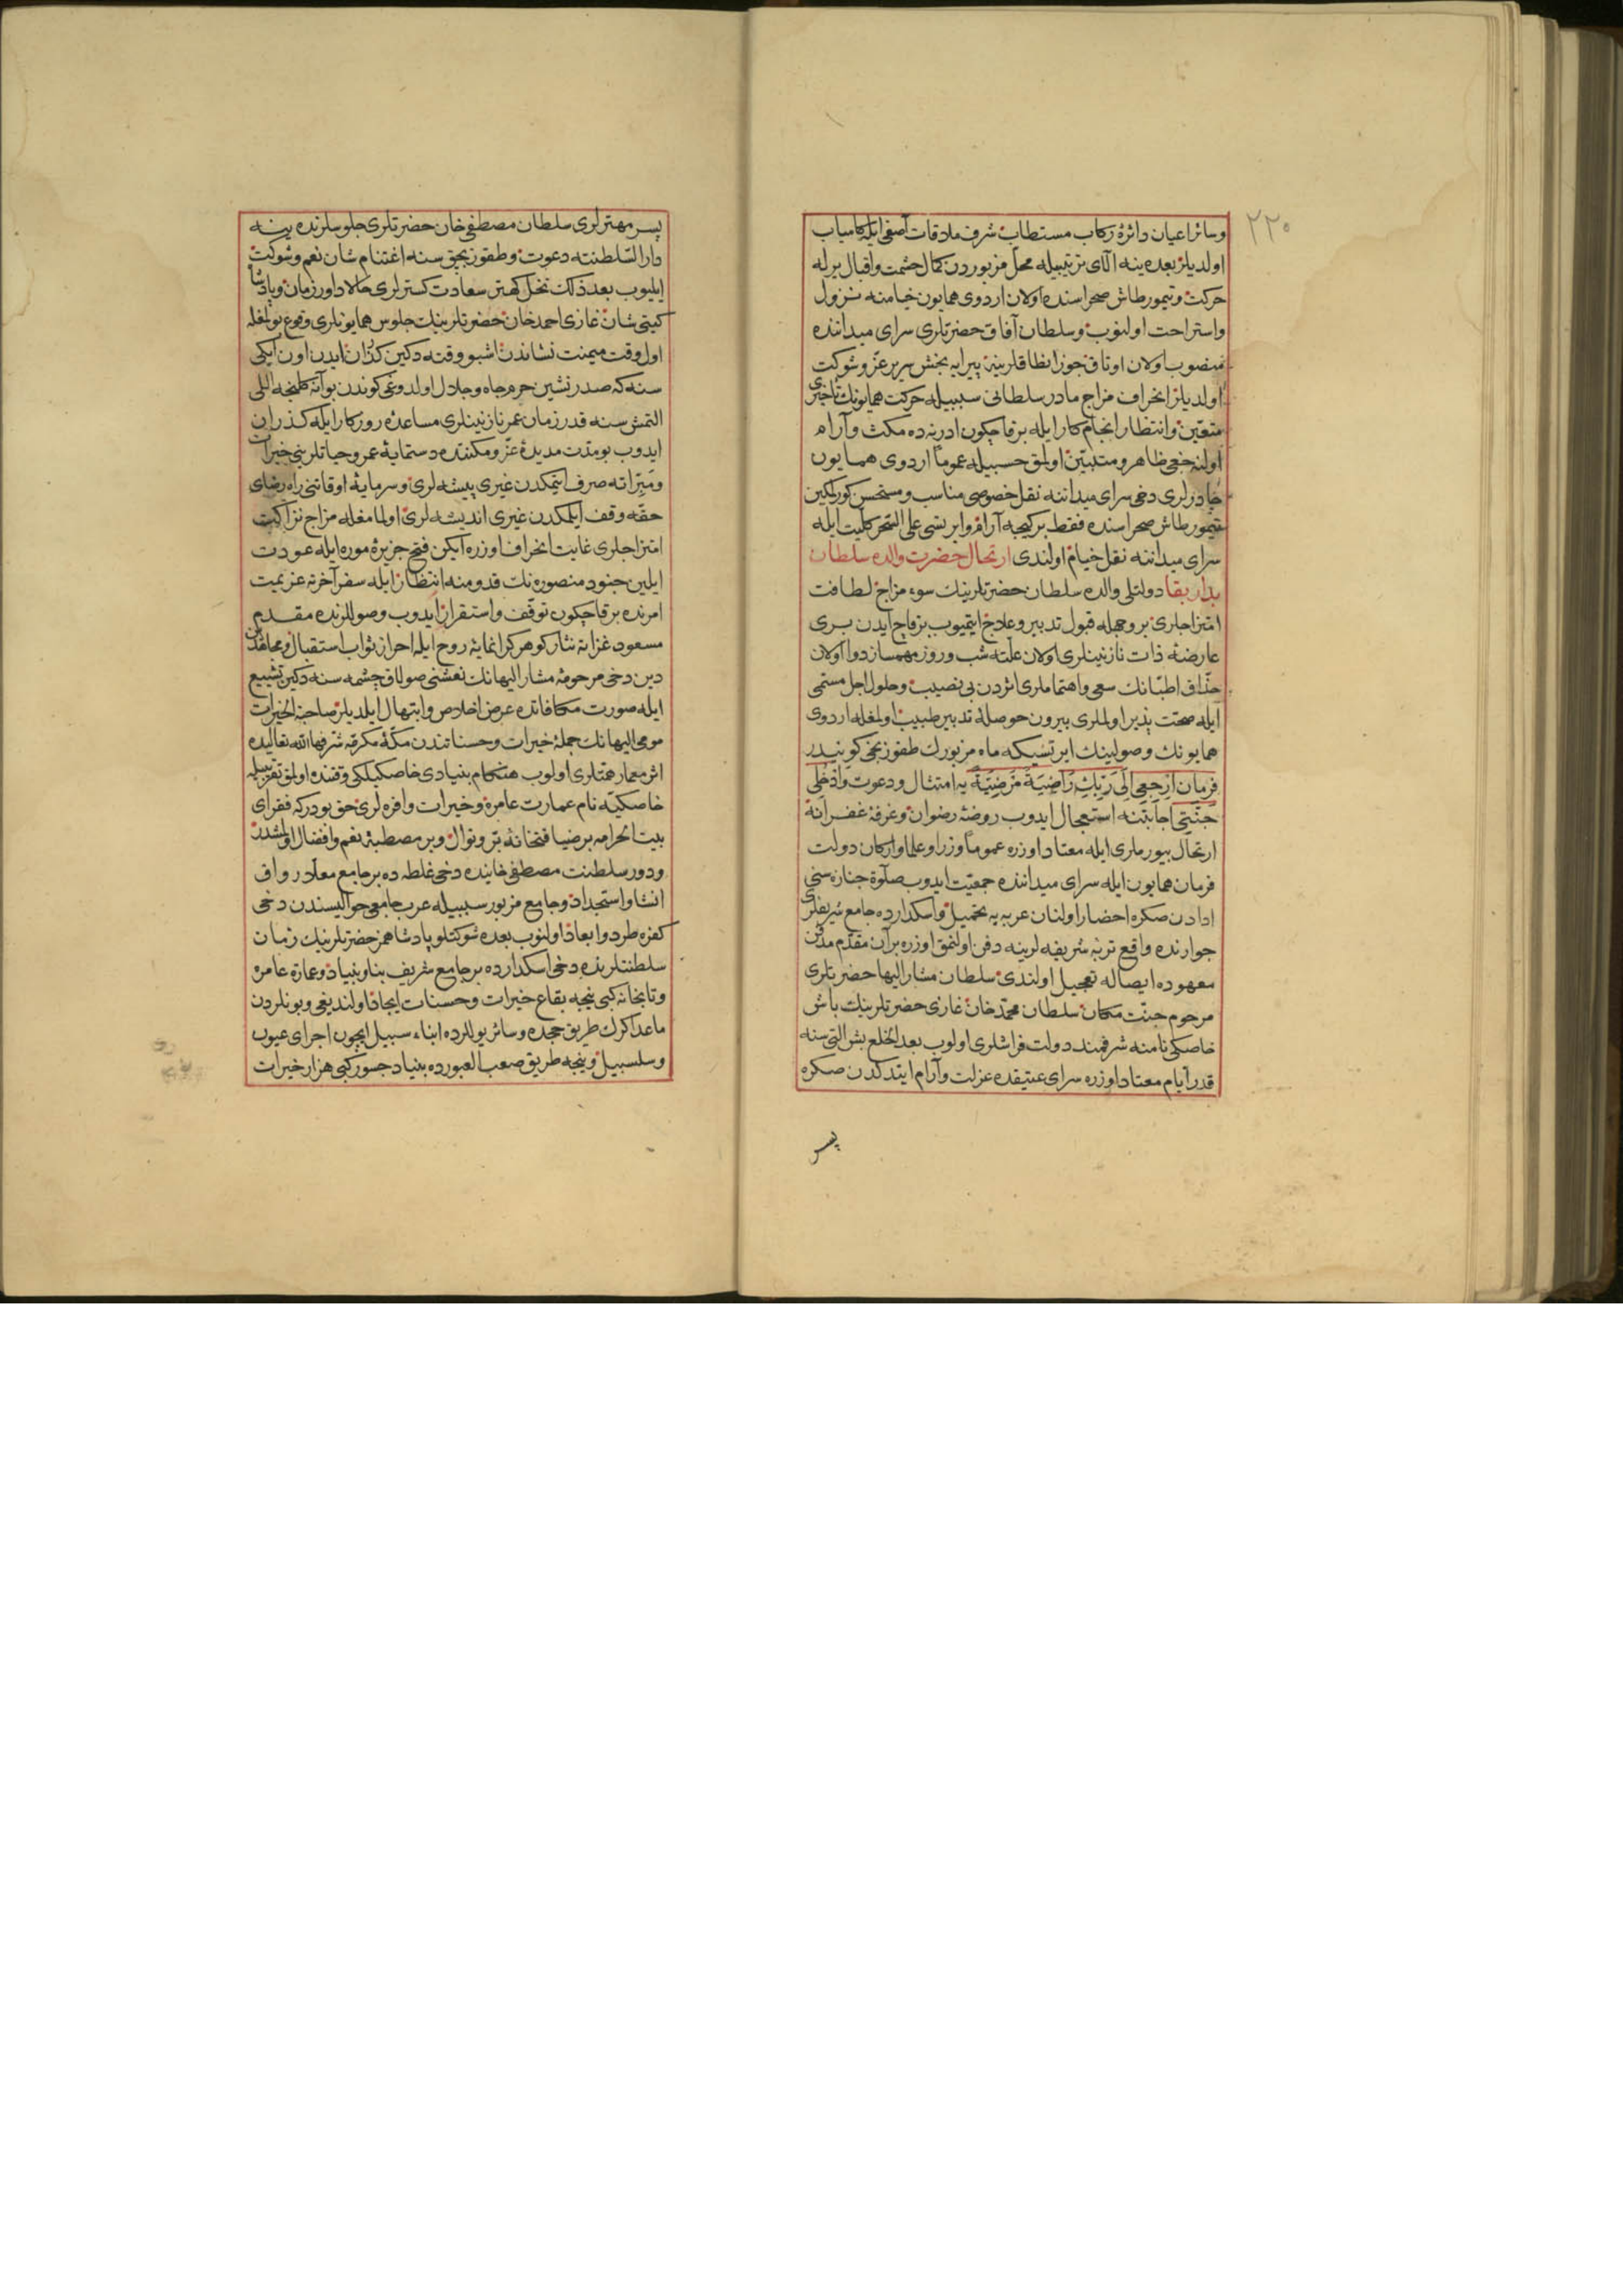 ٢٢٠
وسائر اعيان دائرۀ ركاب مستطاب شرف ملاقات آصفى ايله كامياب
اولديلر بعده ينه آلاى ترتيبيله محل مزبوردن كمال حشمت واقبال برله
حركت و تيمورطاش صحراسنده اولان اردوى همايون خيامنه نزول
واستراحت اولنوب وسلطان آفاق حضرتلرى سراى ميداننده
منصوب اولان اوتاق جوزا نطاقلرينه پيرايه بخش سرير عز وشوكت
اولديلر انحراف مزاج مادر سلطانى سببيله حركت همايونك تأخيرى
متعين وانتظار انجام كار ايله برقاچ كون ادرنه ده مكث وآرام
اولنه جغى ظاهر ومتبين اولمق حسبيله عموما اردوى همايون
چادرلرى دخى سراى ميداننه نقل خصوصى مناسب ومستحسن كورلكين
تيمورطاش صحراسنده فقط بر كيجه آرام وايرتسى على السحر كليت ايله
سراى ميداننه نقل خيام اولندى ارتحال حضرت والده سلطان
بدار بقا دولتلى والده سلطان حضرتلرينك سوء مزاج لطافت
امتزاجلرى بر وجهله قبول تدبير وعلاج ايتميوب برقاچ ايدن برى
عارضۀ ذات نازنينلرى اولان علته شب وروز مهمساز دوا اولان
حذاق اطبانك سعى واهتماملرى اثردن بى نصيب وحلول اجل مسمى
ايله صحت پذير اولملرى بيرون حوصلۀ تدبير طبيب اولمغله اردوى
همايونك وصولينك ايرتسيكه ماه مزبورك طقوزنجى كونيدر
فرمان ارْجِعِى اِلَى رَبِّكِ رَاضِيَةً مَرْضِيَّةً يه امتثال ودعوت وَادْخُلِى
جَنَّتِى اجابتنه استعجال ايدوب روضۀ رضوان وغرفۀ غفرانه
ارتحال بيورملرى ايله معتاد اوزره عموما وزرا وعلما واركان دولت
فرمان همايون ايله سراى ميداننده جمعيت ايدوب صلوة جنازه سنى
ادادن صكره احضار اولنان عربه يه تحميل واسكدارده جامع شريفلرى
جوارنده واقع تربۀ شريفه لرينه دفن اولنمق اوزره برآن مقدم مدفن
معهوده ايصاله تعجيل اولندى سلطان مشار اليها حضرتلرى
مرحوم جنت مكان سلطان محمد خان غازى حضرتلرينك باش
خاصكى نامنه شرفمند دولت فراشلرى اولوب بعد الخلع بش التى سنه
قدر ايام معتاد اوزره سراى عتيقده عزلت وآرام ايتدكدن صكره
پسر
پسر مهترلرى سلطان مصطفى خان حضرتلرى جلوسلرنده ينه
دار السلطنته دعوت وطقوز بچق سنه اغتنام شان نعم وشوكت
ايليوب بعد ذلك نخل كهتر سعادت كسترلرى حالا داور زمان وپادشاه
كيتى شان غازى احمد خان حضرتلرينك جلوس همايونلرى وقوع بولمغله
اول وقت ميمنت نشاندن اشبو وقته دكين كذران ايدن اون ايكى
سنه كه صدر نشين حرم جاه وجلال اولدوغى كوندن بو آنه كلنجه اللى
التمش سنه قدر زمان عمر نازنينلرى مساعدۀ روزكار ايله كذران
ايدوب بو مدت مديدۀ عز ومكنتده دستمايۀ عمر وحياتلرينى خيرات
ومبراته صرف ايتمكدن غيرى پيشه لرى وسرمايۀ اوقاتنى راه رضاى
حقه وقف ايلمكدن غيرى انديشه لرى اولمامغله مزاج نزاكت
امتزاجلرى غايت انحراف اوزره ايكن فتح جزيرۀ موره ايله عودت
ايلين جنود منصوره نك قدومنه انتظار ايله سفر آخرته عزيمت
امرنده برقاچ كون توقف واستقرار ايدوب وصوللرنده مقدم
مسعود غزاته نثار كوهر كرانمايۀ روح ايله احراز ثواب استقبال ومجاهدين
دين دخى مرحومۀ مشار اليهانك نعشنى صولاق چشمه سنه دكين تشييع
ايله صورت مكافاتده عرض اخلاص وابتهال ايلديلر صاحبة الخيرات
مومى اليهانك جملۀ خيرات وحسناتندن مكۀ مكرمه شرفها الله تعاليده
اثر معمار همتلرى اولوب هنكام بنيادى خاصكيلكى وقتنده اولمق تقريبيله
خاصكيه نام عمارت عامره وخيرات وافره لرى حق بودركه فقراى
بيت الحرامه بر ضيافتخانۀ بر ونوال وبر مصطبۀ نعم وافضال اولمشدر
ودور سلطنت مصطفى خانيده دخى غلطه ده بر جامع معلا رواق
انشا واستجداد وجامع مزبور سببيله عرب جامعى حواليسندن دخى
كفره طرد وابعاد اولنوب بعده شوكتلو پادشاهمز حضرتلرينك زمان
سلطنتلرنده دخى اسكدارده بر جامع شريف بنا وبنياد وعمارة عامره
وتابخانه كبى نيجه بقاع خيرات وحسنات ايجاد اولنديغى وبونلردن
ماعدا كرك طريق حجده وسائر يوللرده ابناء سبيل ايچون اجراى عيون
وسلسبيل ونيجه طريق صعب العبورده بنياد جسور كبى هزار خيرات